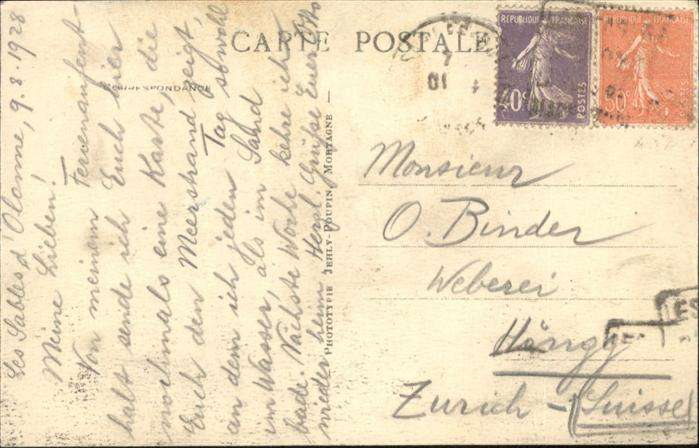 CARTE POSTALE
CORRESPONDANCE
Les Sables d'Olonne, 9.8.1928
Meine Lieben!
Von meinem Ferienaufent-
halt sende ich Euch hier
nochmals eine Karte, die
Euch den Meerstrand zeigt,
an dem ich jeden Tag sowohl
im Wasser, als im Sand
bade. Nächste Woche kehre ich
wieder heim. Herzl. Grüße Euer Otto
PHOTOTYPIE JEHLY-POUPIN, MORTAGNE
REPUBLIQUE FRANÇAISE
40c POSTES
REPUBLIQUE FRANÇAISE
50c POSTES
Monsieur
O. Binder
Weberei
Höngg
Zurich - (Suisse)
LES